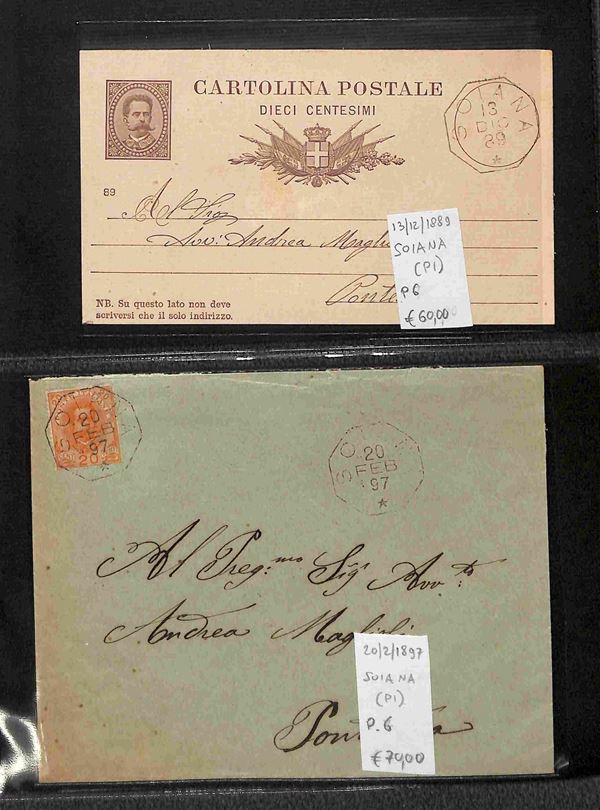 CARTOLINA POSTALE
DIECI CENTESIMI
SOIANA
13
DIC
89
*
89
Al Sig
Avv: Andrea Magli
Ponte
NB. Su questo lato non deve
scriversi che il solo indirizzo.
13/12/1889
SOIANA
(PI)
P6
€60,00
SOIANA
20
FEB
97
*
20
SO
20
FEB
97
*
Al Preg.mo Sig Avv.to
Andrea
20/2/1897
SOIANA
(PI)
P.6
€70,00